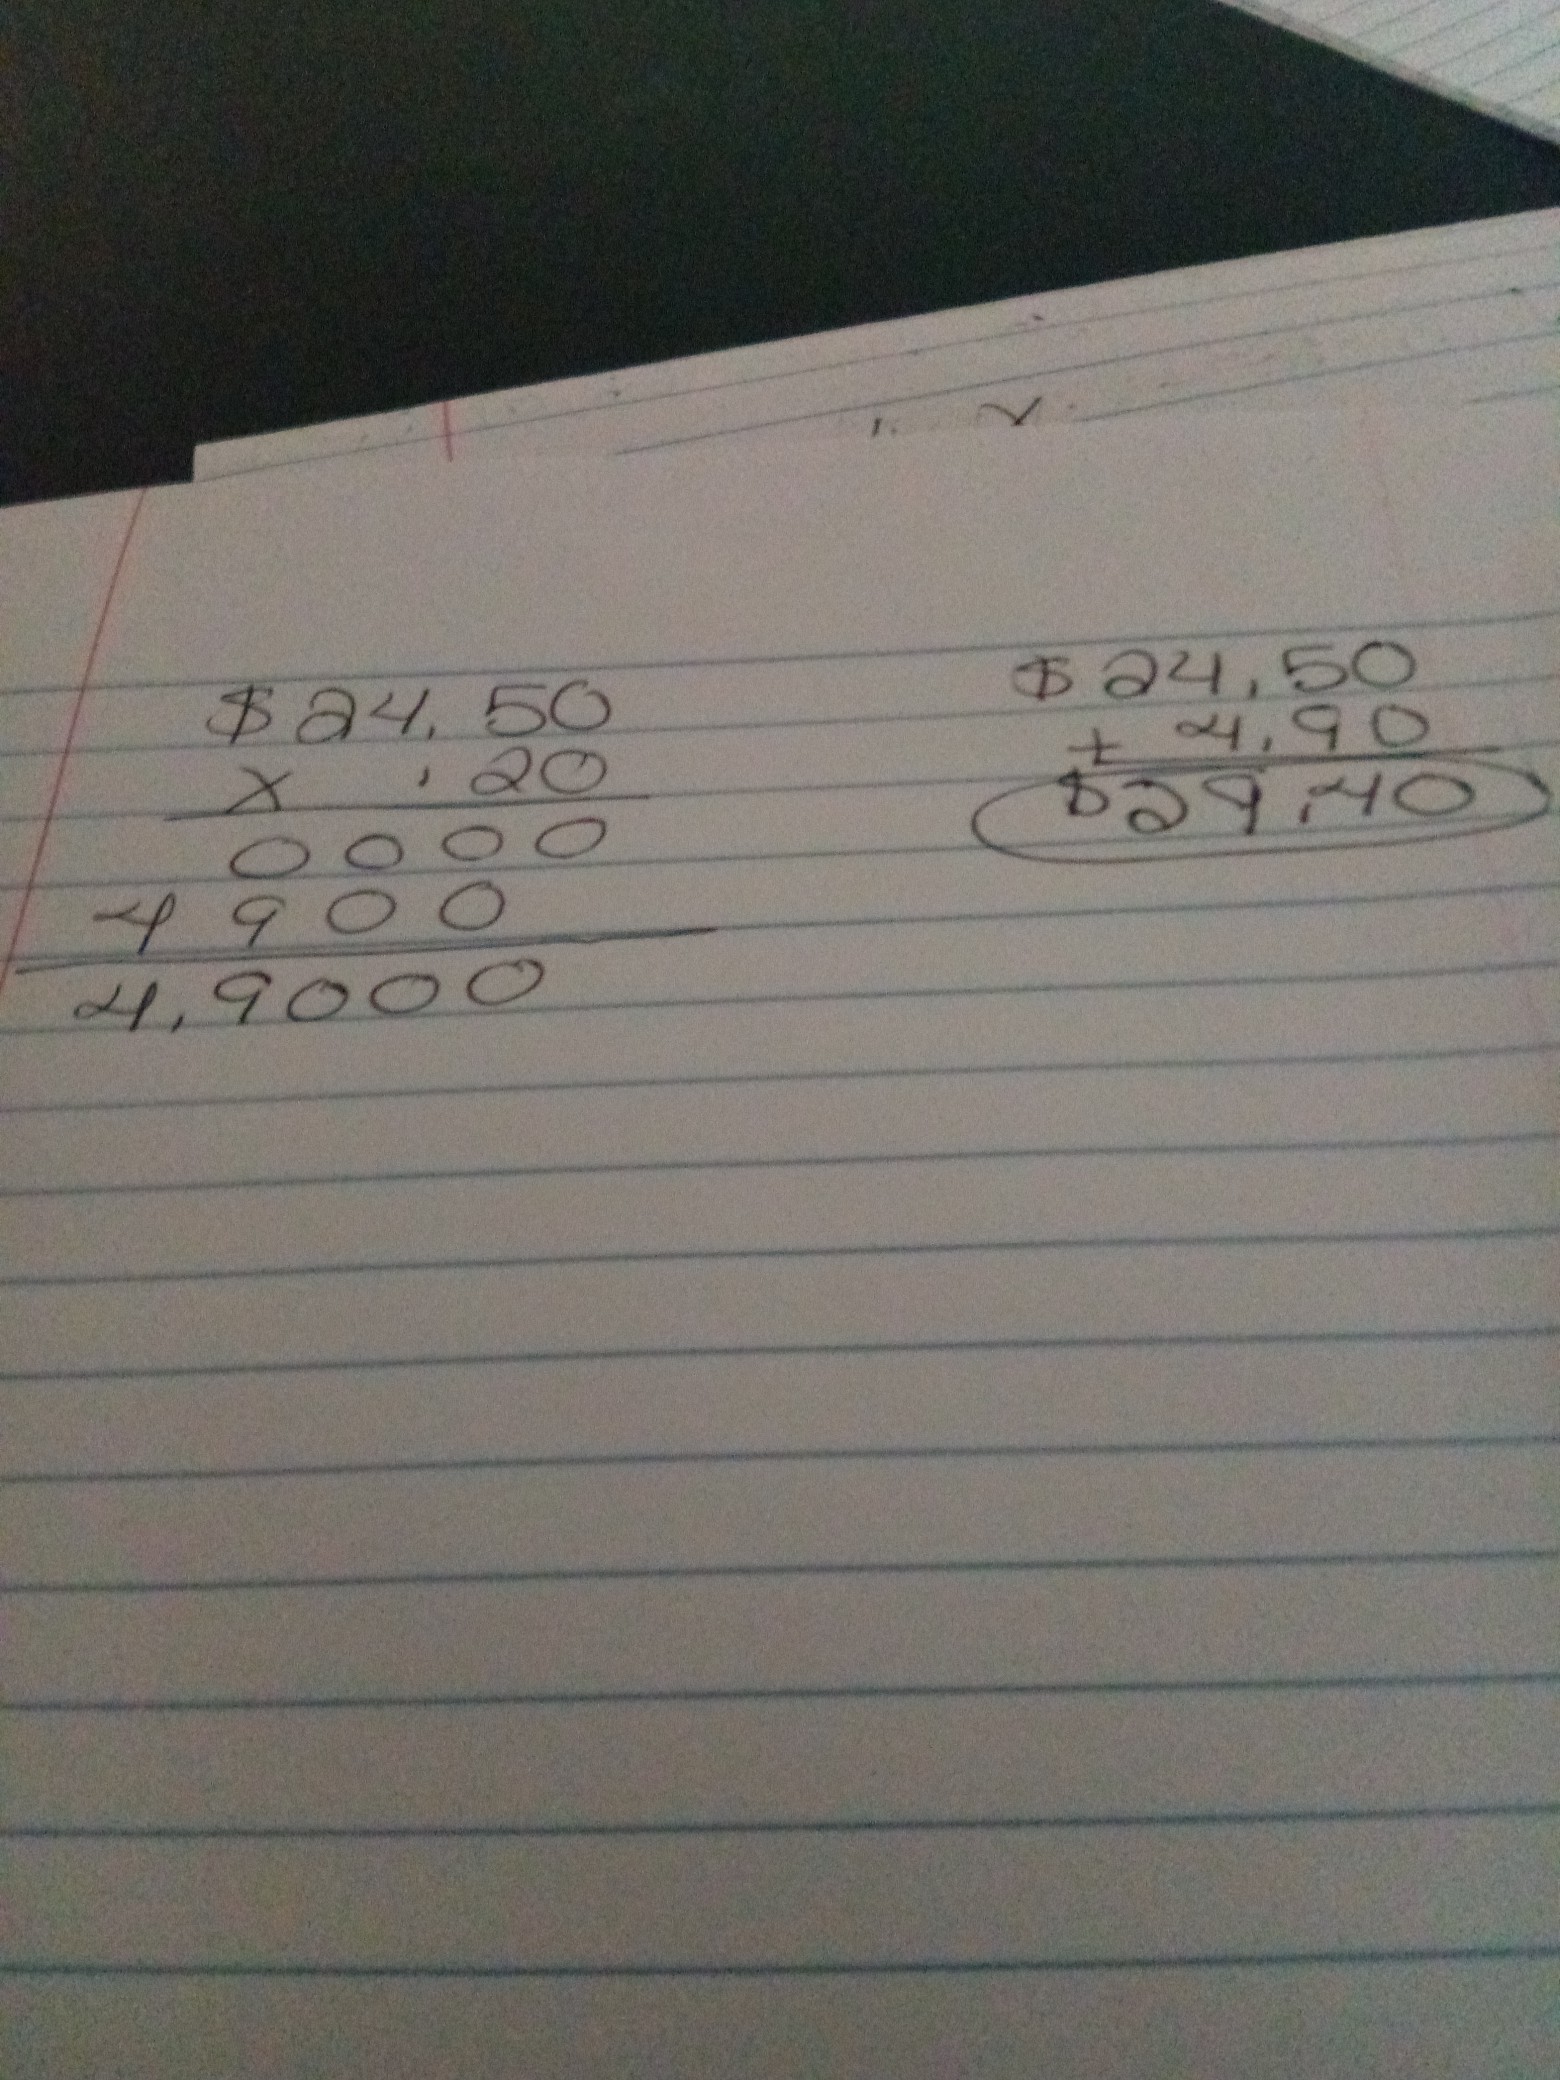 $24.50
x .20
0000
4900
4.9000
$24.50
+ 4.90
$29.40